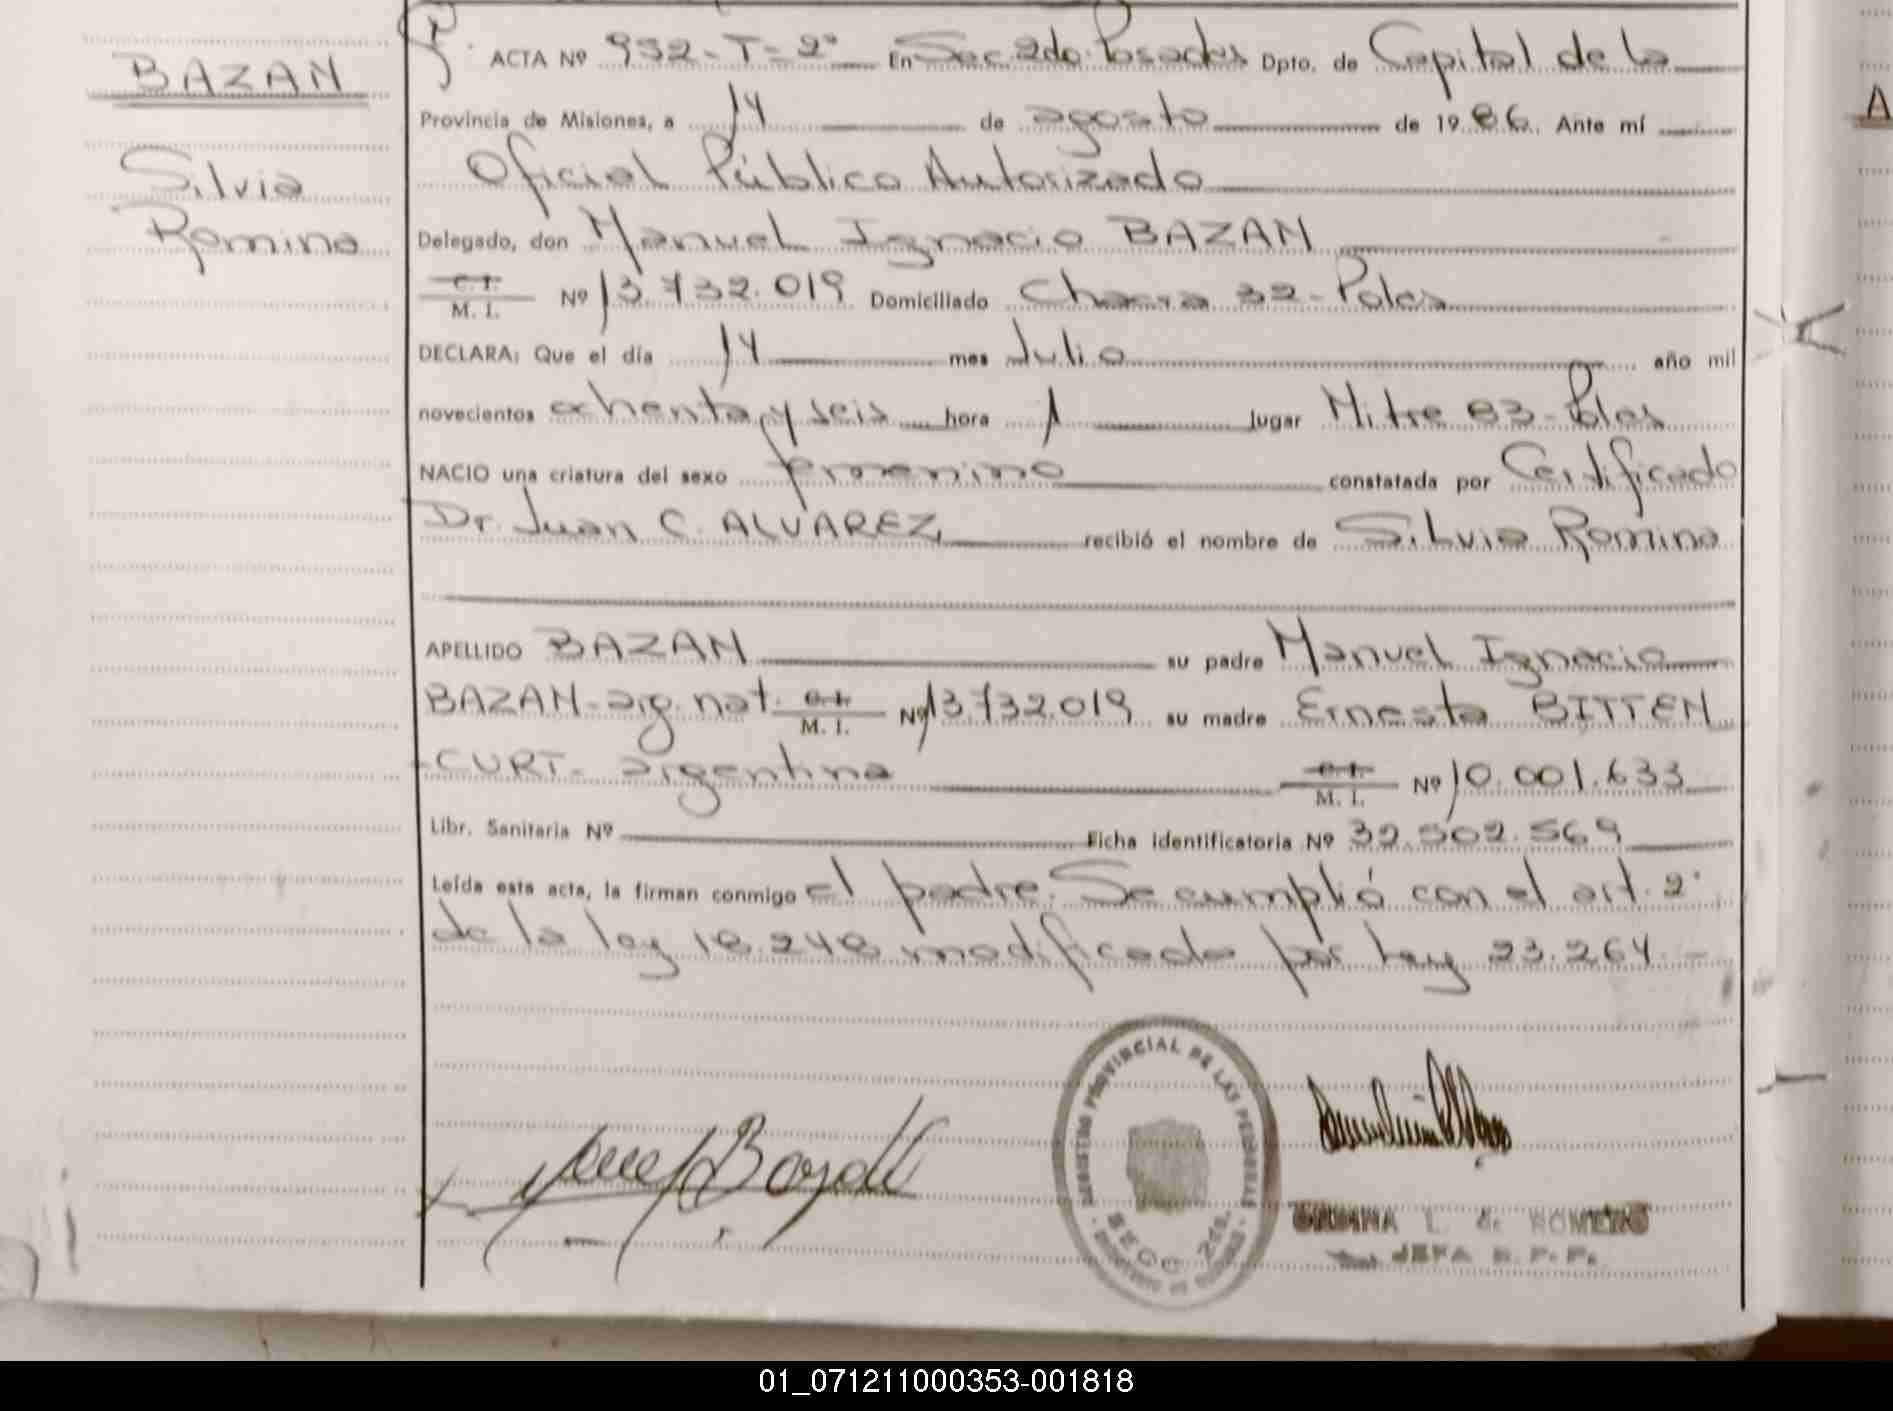 BAZAN
Silvia
Romina
ACTA Nº 932-T-2º En Secc 2da. Posadas Dpto. de Capital de la
Provincia de Misiones, a 14 de agosto de 1986. Ante mí
Oficial Público Autorizado
Delegado, don Manuel Ignacio BAZAN
C. I.
M. I. Nº 13.732.019 Domiciliado Chacra 32-Pdas
DECLARA: Que el día 14 mes Julio año mil
novecientos ochenta y seis hora 1 lugar Mitre 83-Pdas
NACIO una criatura del sexo femenino constatada por Certificado
Dr. Juan C. ALVAREZ recibió el nombre de Silvia Romina
APELLIDO BAZAN su padre Manuel Ignacio
BAZAN-arg. nat. C. I.
M. I. Nº 13.732.019 su madre Ernesta BITTEN
-CURT- argentina C. I.
M. I. Nº 10.001.633
Libr. Sanitaria Nº Ficha identificatoria Nº 32.502.569
Leída esta acta, la firman conmigo el padre. Se cumplió con el art. 2º
de la ley 18.248 modificada por Ley 23.264.-
REGISTRO PROVINCIAL DE LAS PERSONAS
SECC. 2da.
L. de ROMERO
JEFA R. P. P.
A
01_071211000353-001818